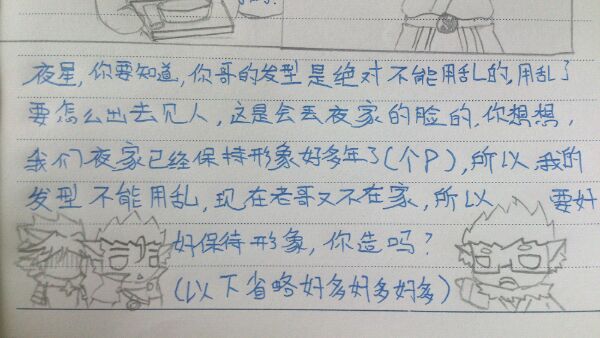 夜星，你要知道，你哥的发型是绝对不能用乱的，用乱了
要怎么出去见人，这是会丢夜家的脸的，你想想，
我们夜家已经保持形象好多年了(个P)，所以我的
发型不能用乱，现在老哥又不在家，所以 要好
好保待形象，你造吗？
(以下省略好多好多好多)